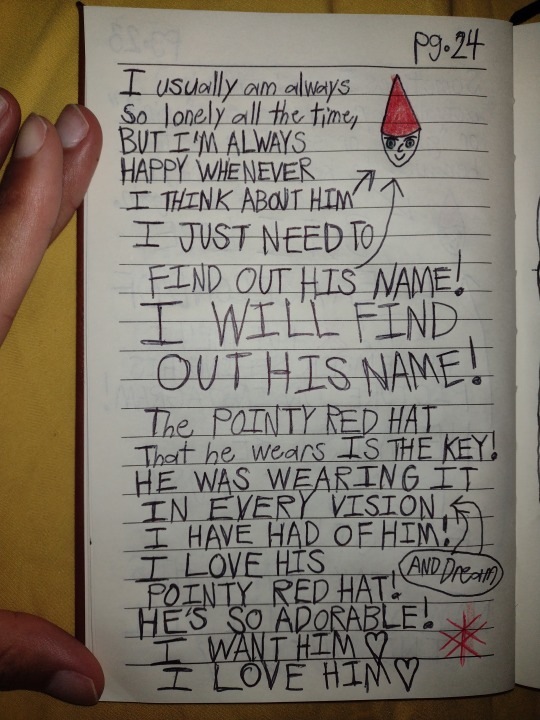 pg.24
I usually am always
so lonely all the time,
BUT I'M ALWAYS
HAPPY WHENEVER
I THINK ABOUT HIM
I JUST NEED TO
FIND OUT HIS NAME!
I WILL FIND
OUT HIS NAME!
The POINTY RED HAT
That he wears IS THE KEY!
HE WAS WEARING IT
IN EVERY VISION
I HAVE HAD OF HIM!
AND DReaM
I LOVE HIS
POINTY RED HAT!
HE'S SO ADORABLE!
I WANT HIM ♡
I LOVE HIM ♡